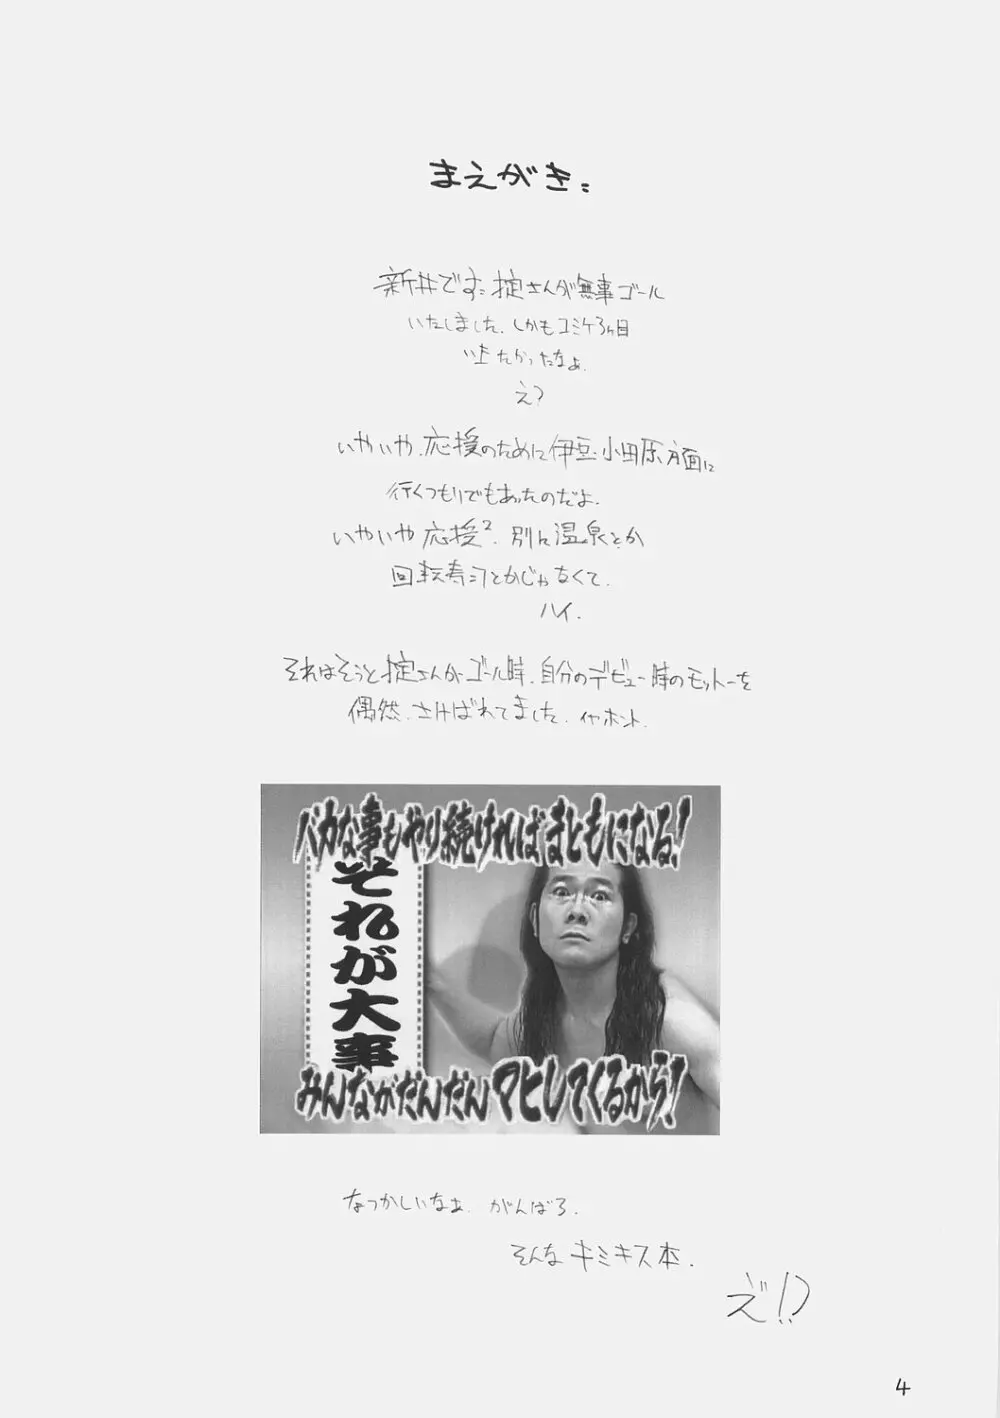 まえがき:
新井です: 掟さんが無事ゴール
いたしました. しかもコミケ3ヶ目
いきたかったなぁ.
え?
いやいや.応援のために伊豆・小田原方面に
行くつもりでもあったのだよ.
いやいや応援². 別に温泉とか
回転寿司とかじゃなくて.
ハイ.
それはそうと掟さんがゴール時.自分のデビュー時のモットーを
偶然.さけばれてました.イヤホント.
バカな事もやり続ければまともになる!
それが大事
みんながだんだんマヒしてくるから!
なつかしいなぁ. がんばろ.
そんなキミキス本.
え゛!?
4